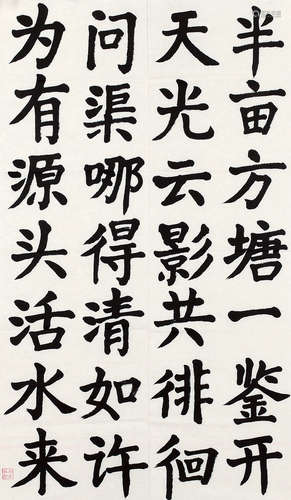 半亩方塘一鉴开
天光云影共徘徊
问渠哪得清如许
为有源头活水来